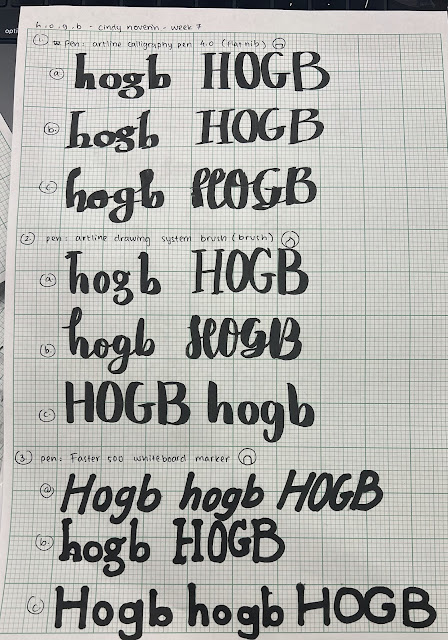 h.o.g.b - cindy novenn - week 7
1. pen: artline calligraphy pen 4.0 (flat nib)
a. hogb HOGB
b. hogb HOGB
c. hogb HOGB
2. pen: artline drawing system brush (brush)
a. hogb HOGB
b. hogb HOGB
c. HOGB hogb
3. pen: Faster 500 whiteboard marker
a. Hogb hogb HOGB
b. hogb HOGB
c. Hogb hogb HOGB